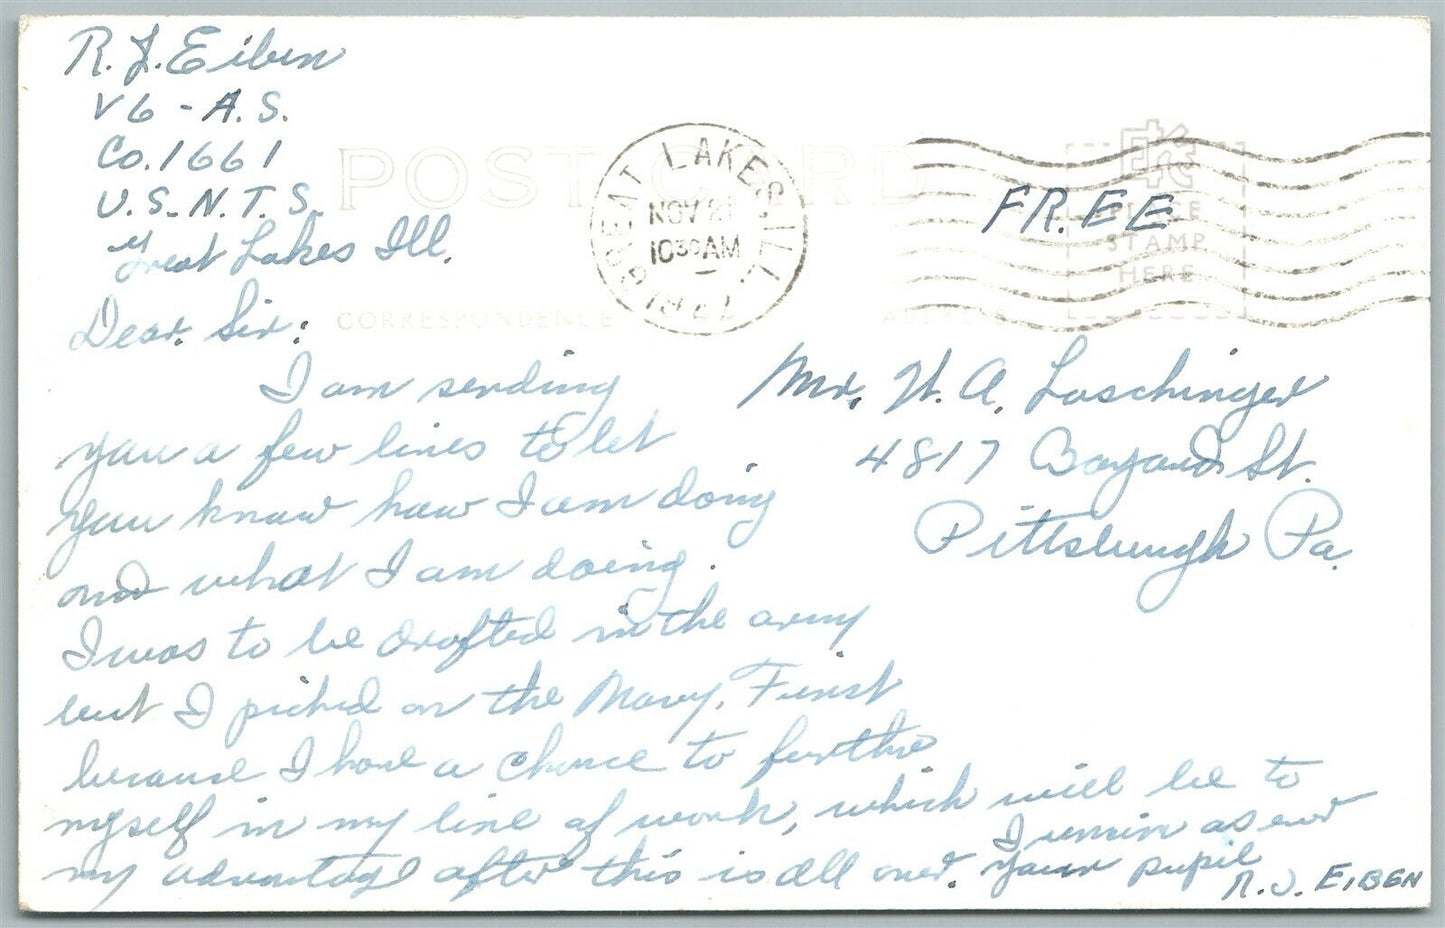 R. J. Eiben
V6 - A.S.
Co. 1661
U.S.N.T.S.
Great Lakes Ill.
POST CARD
GREAT LAKES, ILL.
NOV 21
10 30 AM
1942
FREE
PLACE
STAMP
HERE
CORRESPONDENCE
ADDRESS
Dear Sir:
I am sending
you a few lines to let
you know how I am doing
and what I am doing.
I was to be drafted in the army
but I picked on the Navy. First
because I have a chance to further
myself in my line of work, which will be to
my advantage after this is all over.
I remain as ever
your pupil
R. J. EIBEN
Mr. W. A. Loschinger
4817 Bayard St.
Pittsburgh Pa.